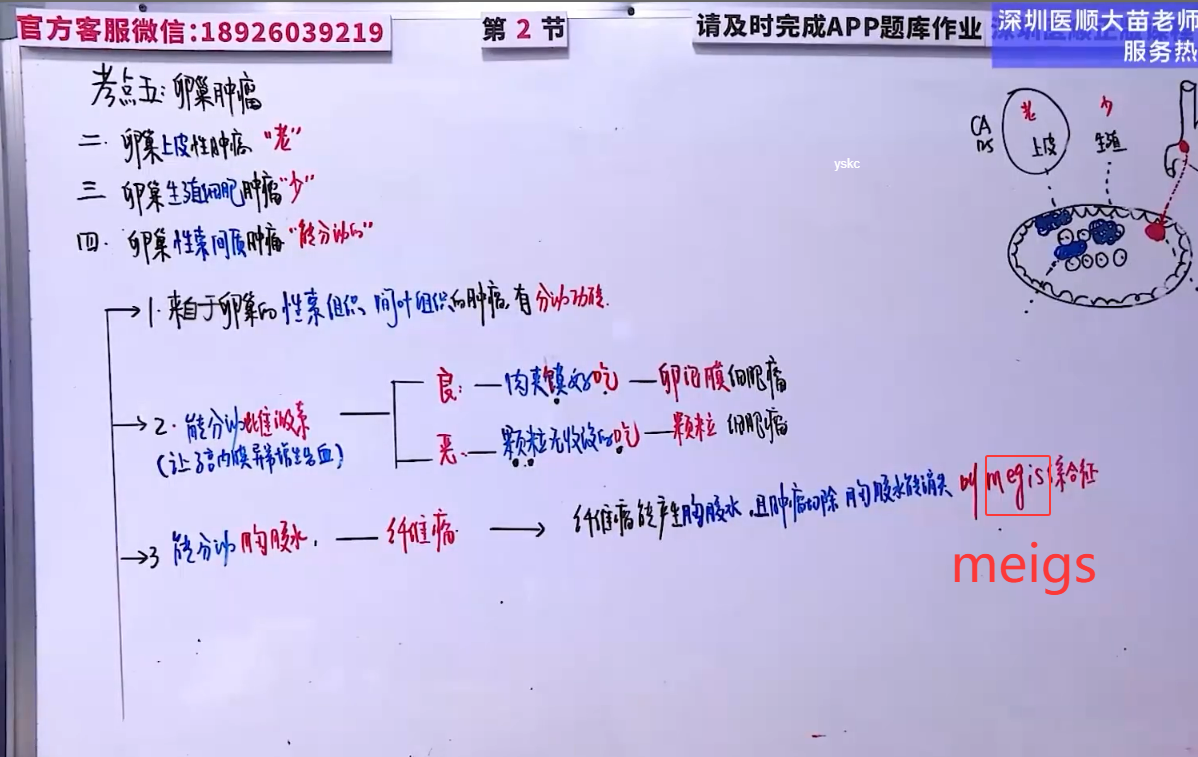 官方客服微信:18926039219
第 2 节
请及时完成APP题库作业
深圳医顺大苗老师
服务热
yskc
考点五:卵巢肿瘤
二. 卵巢上皮性肿瘤 "老"
三 卵巢生殖细胞肿瘤 "少"
四. 卵巢性索间质肿瘤 "能分泌的"
→ 1. 来自于卵巢的性索组织、间叶组织的肿瘤, 有分泌功能.
→ 2. 能分泌雌激素
(让子宫内膜异常增生出血)
良: — 肉夹馍好吃 — 卵泡膜细胞瘤
恶. — 颗粒无收没的吃 — 颗粒细胞瘤
→ 3 能分泌胸腹水. — 纤维瘤. → 纤维瘤能产生胸腹水,且肿瘤切除 胸腹水能消失 megis综合征
meigs
CA
老
上皮
少
生殖